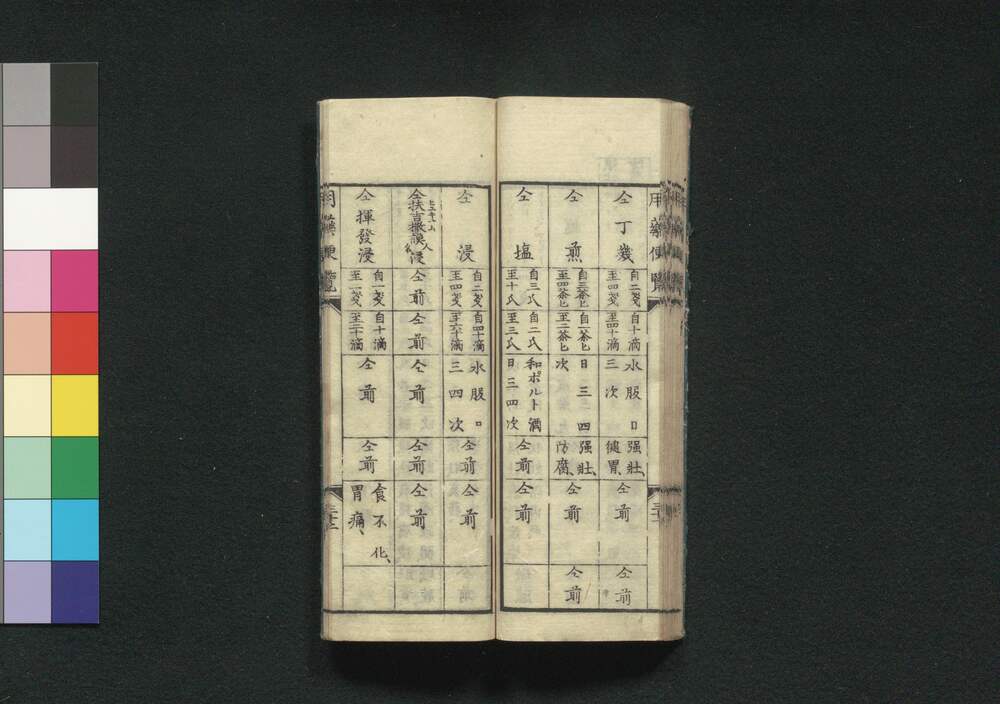 用藥便覧
仝丁幾
自二𢆶
至四𢆶
自十滴
至四十滴
水服日
三次
强壯、
健胃、
仝前
仝前
仝煎
自三茶匕
至四茶匕
自一茶匕
至二茶匕
日三四
次
强壯、
防腐、
仝前
仝前
仝塩
自三氏
至十氏
自二氏
至三氏
和ポルト酒
日三四次
仝前
仝前
仝浸
自二
至四
自四十滴
至六十滴
水服日
三四次
仝前
仝前
仝前
仝前
仝前
仝前
仝前
仝揮發浸
自一
至二
自十滴
至二十滴
仝前
仝前
食不化、
胃痛、
用藥便覧